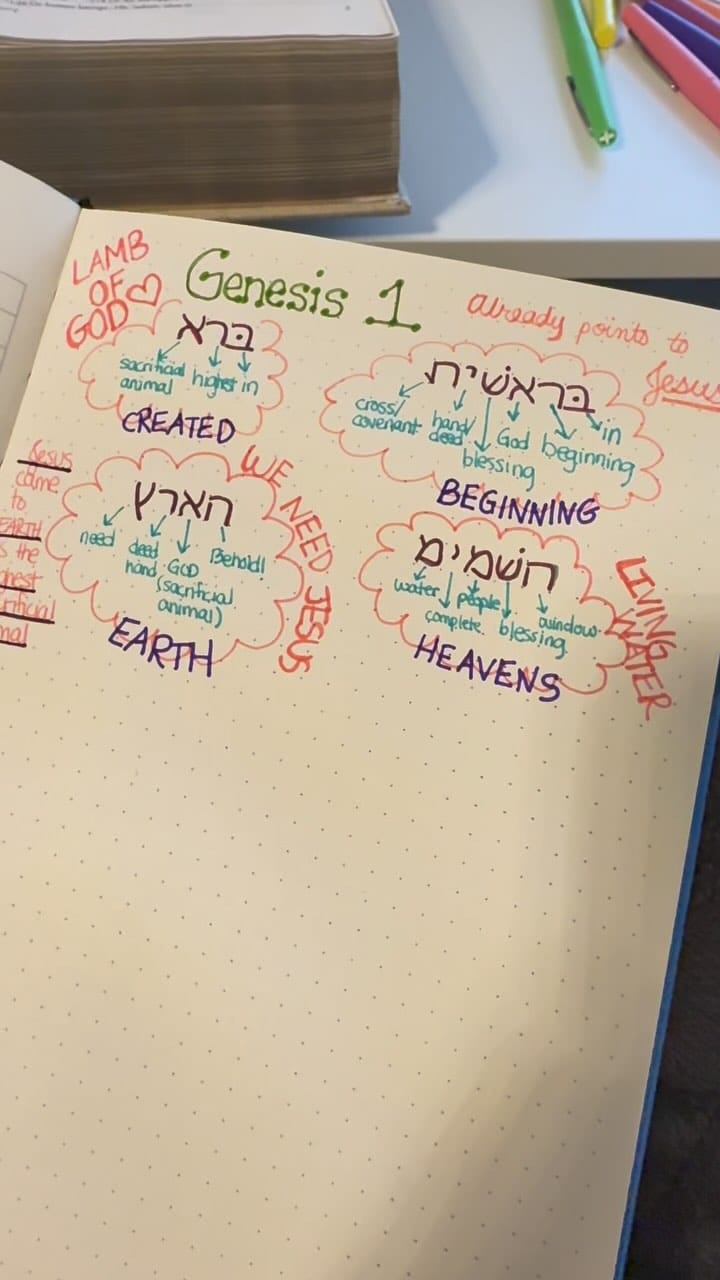 Genesis 1
already points to
Jesus
LAMB
OF
GOD
ברא
sacrificial
animal
highest in
CREATED
בראשית
cross/
covenant
hand/
deed
blessing
God
beginning
in
BEGINNING
Jesus
came
to
EARTH
the
הארץ
need
deed
hand
GOD
(sacrificial
animal)
Behold!
EARTH
WE NEED JESUS
השמים
water
complete
people
blessing
window
HEAVENS
LIVING
WATER